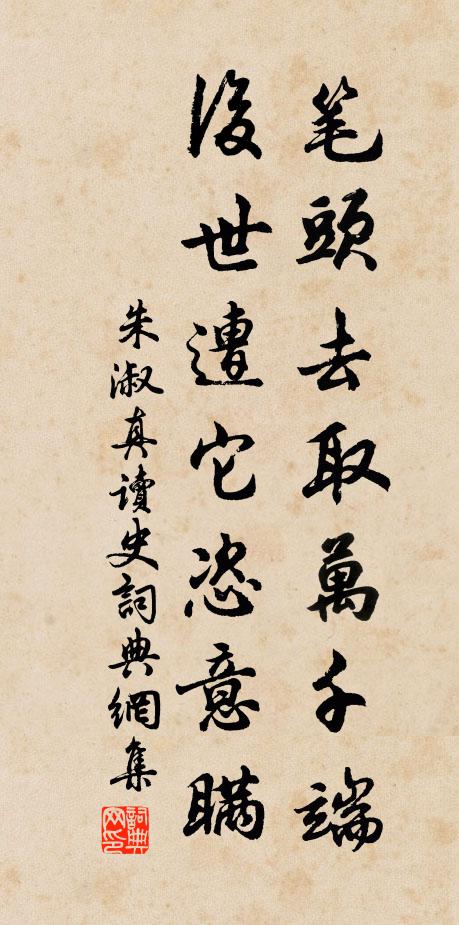 笔頭去取萬千端
後世遭它恣意瞞
朱淑真讀史詞典網集
詞典网印